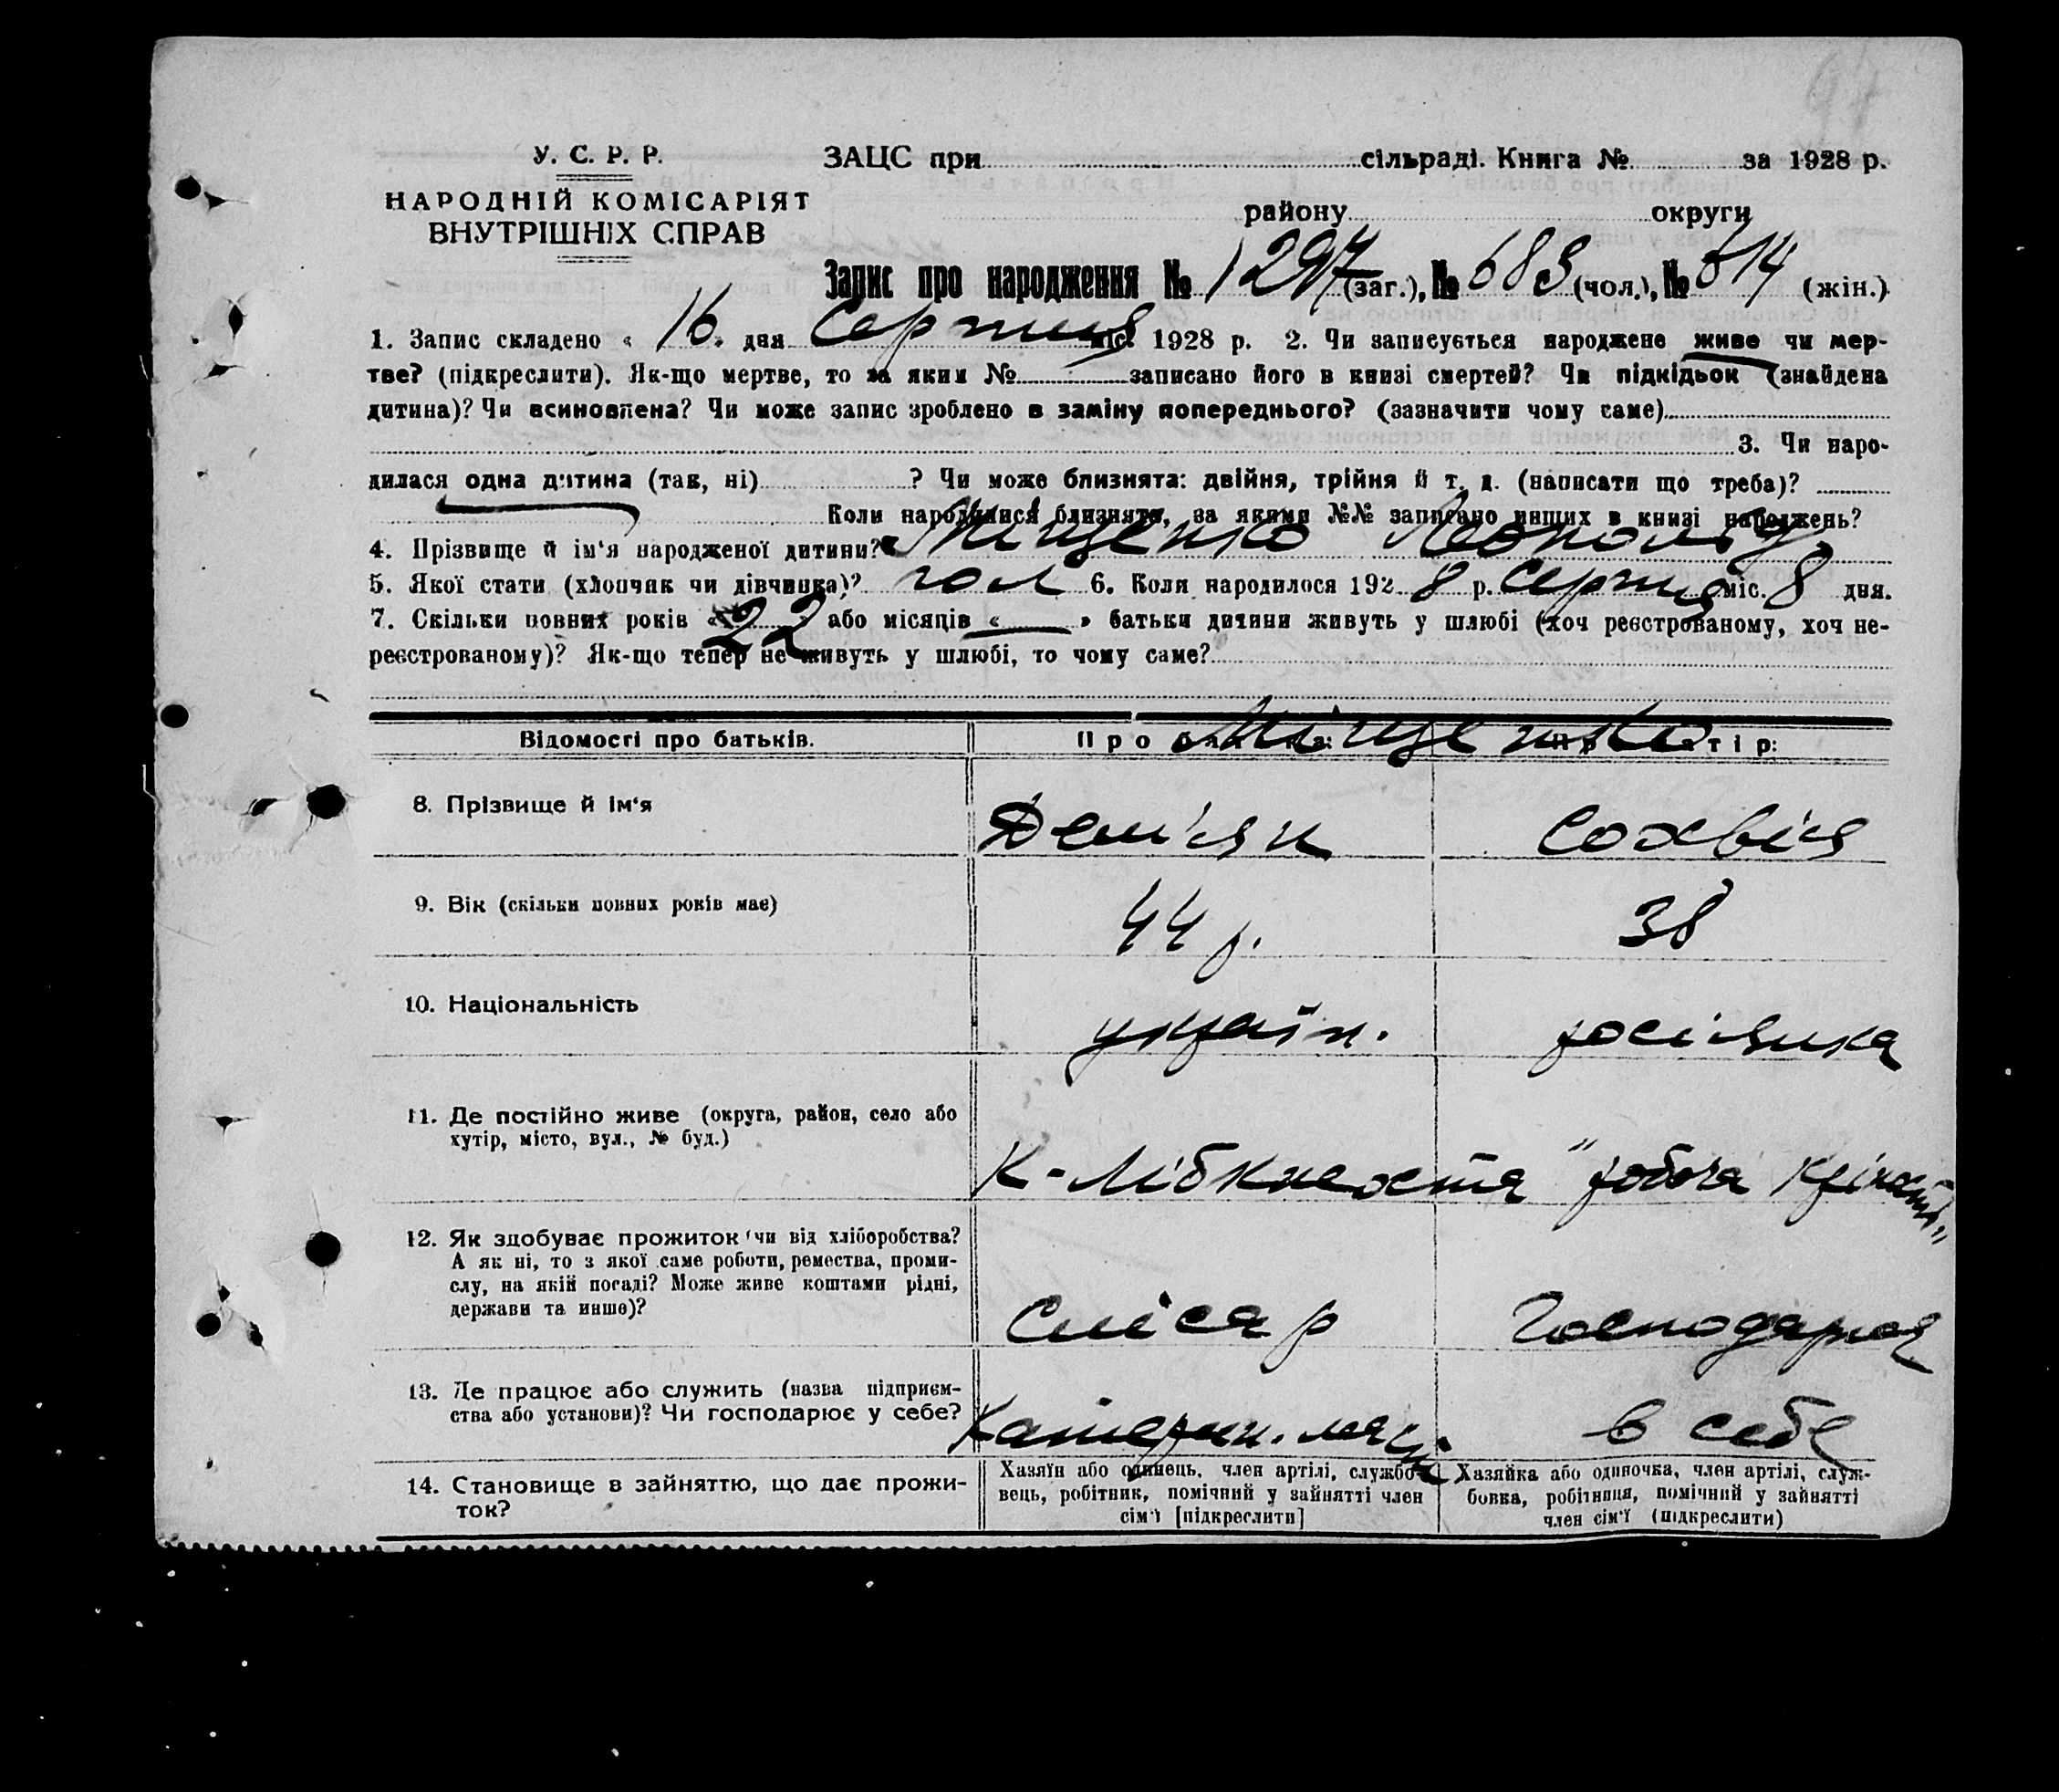 97
У. С. Р. Р.
НАРОДНІЙ КОМІСАРІЯТ
ВНУТРІШНІХ СПРАВ
ЗАЦС при сільраді. Книга № за 1928 р.
району округи
Запис про народження № 1297 (заг.), № 683 (чол.), № 614 (жін.)
1. Запис складено « 16 » дня Серпня міс. 1928 р. 2. Чи записується народжене живе чи мер-
тве? (підкреслити). Як-що мертве, то за яким № записано його в книзі смертей? Чи підкідьок (знайдена
дитина)? Чи всиновлена? Чи може запис зроблено в заміну попереднього? (зазначити чому саме)
3. Чи наро-
дилася одна дитина (так, ні) ? Чи може близнята: двійня, трійня й т. д. (написати що треба)?
Коли народилися близнята, за якими №№ записано инших в книзі народжень?
4. Прізвище й ім‘я народженої дитини? Міщенко Леопольд
5. Якої статі (хлопчик чи дівчинка)? чол 6. Коли народилося 192 8 р. Серпня міс. 8 дня.
7. Скільки повних років « 22 » або місяців « — » батьки дитини живуть у шлюбі (хоч реєстрованому, хоч не-
реєстрованому)? Як-що тепер не живуть у шлюбі, то чому саме?
Міщенко
Відомості про батьків. Про батька: Про матір:
8. Прізвище й ім‘я Дем'ян Софія
9. Вік (скільки повних років має) 44 р. 38
10. Національність україн. росіянка
11. Де постійно живе (округа, район, село або
хутір, місто, вул., № буд.)
К-Лібкнехта "робоча
12. Як здобуває прожиток чи від хліборобства?
А як ні, то з якої саме роботи, ремества, проми-
слу, на якій посаді? Може живе коштами рідні,
держави та инше)?
Слісар Господарка
13. Де працює або служить (назва підприєм-
ства або установи)? Чи господарює у себе?
Катерин. в себе
14. Становище в зайняттю, що дає прожи-
ток?
Хазяїн або одинець, член артілі, службо-
вець, робітник, помічний у зайнятті член
сім‘ї [підкреслити]
Хазяйка або одиночка, член артілі, служ-
бовка, робітниця, помічний у зайнятті
член сім‘ї (підкреслити)